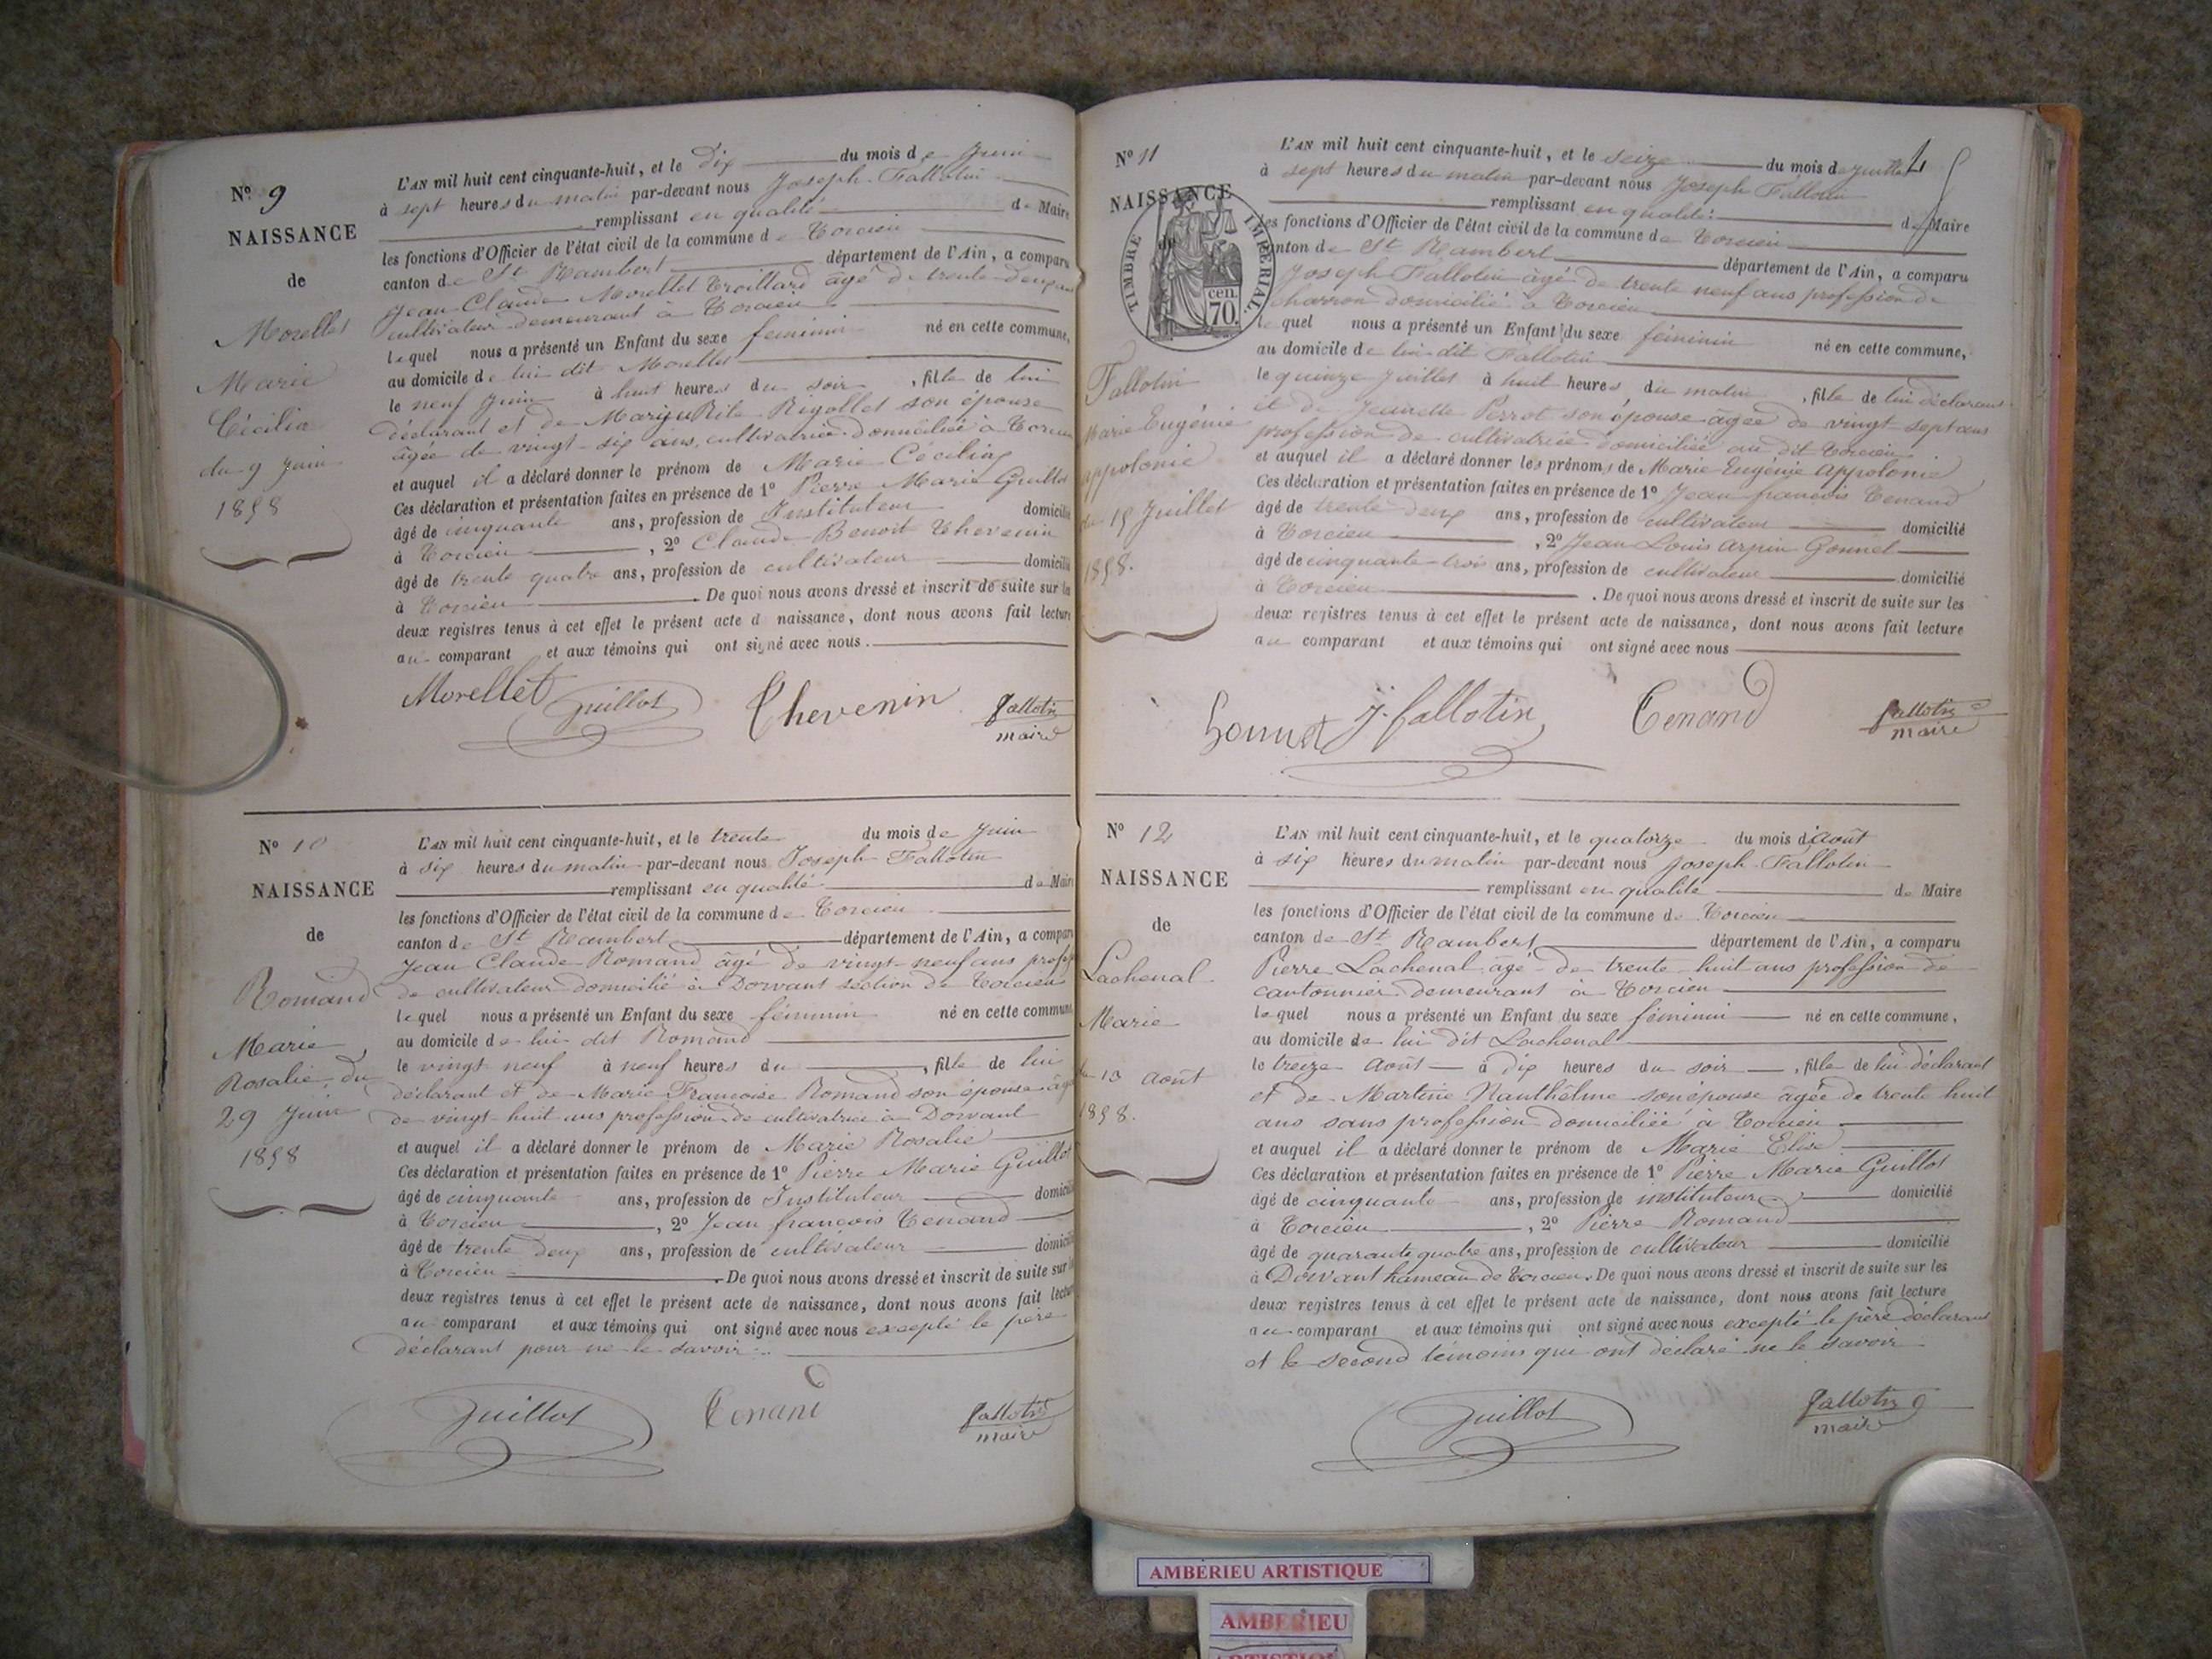 Nº 9
NAISSANCE
de
Morellet
Marie
Cécilia
du 9 Juin
1858
L'AN mil huit cent cinquante-huit, et le dix du mois de Juin
à sept heures du matin par-devant nous Joseph Fallotin
remplissant en qualité de Maire
les fonctions d'Officier de l'état civil de la commune de Torcieu
canton de St Rambert département de l'Ain, a comparu
Jean Claude Morellet Troillard âgé de trente-deux ans
cultivateur demeurant à Torcieu
lequel nous a présenté un Enfant du sexe féminin né en cette commune,
au domicile de lui dit Morellet
le neuf Juin à huit heures du soir, fille de lui
déclarant et de Rigollet son épouse
âgée de vingt-six ans, cultivatrice domiciliée à Torcieu
et auquel il a déclaré donner le prénom de Marie Cécilia
Ces déclaration et présentation faites en présence de 1º Pierre Marie Guillot
âgé de cinquante ans, profession de Instituteur domicilié
à Torcieu, 2º Claude Benoit Thevenin
âgé de trente quatre ans, profession de cultivateur domicilié
à Torcieu. De quoi nous avons dressé et inscrit de suite sur les
deux registres tenus à cet effet le présent acte d naissance, dont nous avons fait lecture
au comparant et aux témoins qui ont signé avec nous.
Morellet Guillot Chevenin fallotin
maire
Nº 10
NAISSANCE
de
Romand
Marie
Rosalie du
29 Juin
1858
L'AN mil huit cent cinquante-huit, et le trente du mois de Juin
à six heures du matin par-devant nous Joseph Fallotin
remplissant en qualité de Maire
les fonctions d'Officier de l'état civil de la commune de Torcieu
canton de St Rambert département de l'Ain, a comparu
Jean Claude Romand âgé de vingt-neuf ans profess
de cultivateur domicilié à Dorvant section de Torcieu
lequel nous a présenté un Enfant du sexe féminin né en cette commune
au domicile de lui dit Romand
le vingt neuf à neuf heures du , fille de lui
déclarant et de Marie Francoise Romand son épouse âgée
de vingt-huit ans profession de cultivatrice à Dorvant
et auquel il a déclaré donner le prénom de Marie Rosalie
Ces déclaration et présentation faites en présence de 1º Pierre Marie Guillot
âgé de cinquante ans, profession de Instituteur domicilié
à Torcieu, 2º Jean françois Tenand
âgé de trente deux ans, profession de cultivateur domicilié
à Torcieu. De quoi nous avons dressé et inscrit de suite sur les
deux registres tenus à cet effet le présent acte de naissance, dont nous avons fait lecture
au comparant et aux témoins qui ont signé avec nous excepté le père
déclarant pour ne le savoir.
Guillot Tenand fallotin
maire
Nº 11
NAISSANCE
de
TIMBRE IMPERIAL.
cen.
70.
Fallotin
Marie Eugénie
appolonie
du 15 Juillet
1858.
L'AN mil huit cent cinquante-huit, et le seize du mois de Juillet
à sept heures du matin par-devant nous Joseph Fallotin
remplissant en qualité de Maire
les fonctions d'Officier de l'état civil de la commune de Torcieu
canton de St Rambert département de l'Ain, a comparu
Joseph Fallotin âgé de trente neuf ans profession de
charron domicilié à Torcieu
lequel nous a présenté un Enfant du sexe féminin né en cette commune,
au domicile de lui dit Fallotin
le quinze Juillet à huit heures du matin, fille de lui déclarant
et de Jeanette Perrot son épouse âgée de vingt-sept ans
profession de cultivatrice domiciliée au dit Torcieu
et auquel il a déclaré donner les prénoms de Marie Eugénie Appolonie
Ces déclaration et présentation faites en présence de 1º Jean françois Tenand
âgé de trente deux ans, profession de cultivateur domicilié
à Torcieu, 2º Jean Louis arpin Gonnet
âgé de cinquante-trois ans, profession de cultivateur domicilié
à Torcieu. De quoi nous avons dressé et inscrit de suite sur les
deux registres tenus à cet effet le présent acte de naissance, dont nous avons fait lecture
au comparant et aux témoins qui ont signé avec nous
Gonnet J. fallotin Tenand fallotin
maire
Nº 12
NAISSANCE
de
Lachenal
Marie
du 13 août
1858.
L'AN mil huit cent cinquante-huit, et le quatorze du mois d'août
à six heures du matin par-devant nous Joseph Fallotin
remplissant en qualité de Maire
les fonctions d'Officier de l'état civil de la commune de Torcieu
canton de St Rambert département de l'Ain, a comparu
Pierre Lachenal âgé de trente huit ans profession de
cantonnier demeurant à Torcieu
lequel nous a présenté un Enfant du sexe féminin né en cette commune,
au domicile de lui dit Lachenal
le treize Août à dix heures du soir, fille de lui déclarant
et de Martine Nanthelme son épouse âgée de trente huit
ans sans profession domiciliée à Torcieu
et auquel il a déclaré donner le prénom de Marie Elise
Ces déclaration et présentation faites en présence de 1º Pierre Marie Guillot
âgé de cinquante ans, profession de instituteur domicilié
à Torcieu, 2º Pierre Romand
âgé de quarante quatre ans, profession de cultivateur domicilié
à Dorvant hameau de Torcieu. De quoi nous avons dressé et inscrit de suite sur les
deux registres tenus à cet effet le présent acte de naissance, dont nous avons fait lecture
au comparant et aux témoins qui ont signé avec nous excepté le père déclarant
et le second témoins qui ont déclaré ne le savoir
Guillot fallotin
maire
AMBÉRIEU ARTISTIQUE
AMBERIEU
ARTISTIQUE